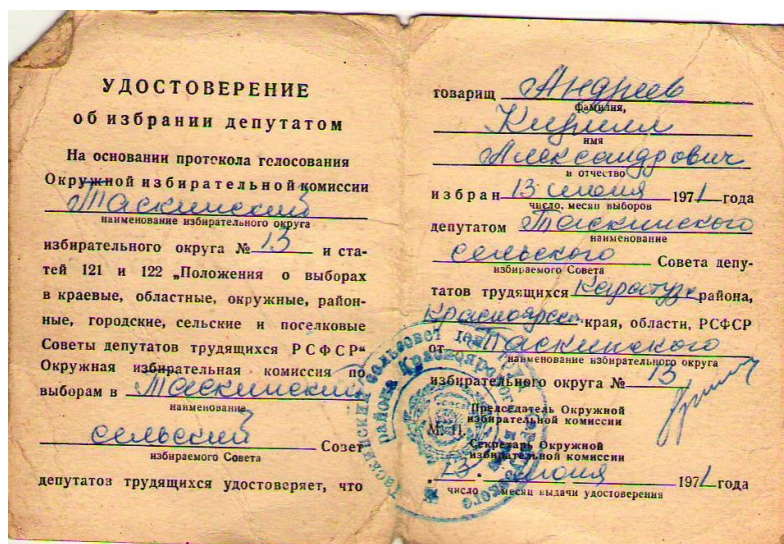 УДОСТОВЕРЕНИЕ
об избрании депутатом
На основании протокола голосования
Окружной избирательной комиссии
Таскинский
наименование избирательного округа
избирательного округа № 13 и ста-
тей 121 и 122 „Положения о выборах
в краевые, областные, окружные, район-
ные, городские, сельские и поселковые
Советы депутатов трудящихся РСФСР"
Окружная избирательная комиссия по
выборам в Таскинский
наименование
сельский Совет
избираемого Совета
депутатов трудящихся удостоверяет, что
товарищ Андреев
фамилия,
Кирилл
имя
Александрович
и отчество
избран 13 июня 1971 года
число, месяц выборов
депутатом Таскинского
наименование
сельского Совета депу-
избираемого Совета
татов трудящихся Каратуз района,
Красноярск края, области, РСФСР
от Таскинского
наименование избирательного округа
избирательного округа № 13
Председатель Окружной
избирательной комиссии
М. П.
Секретарь Окружной
избирательной комиссии
„13" июня 1971 года
число месяц выдачи удостоверения
Таскинский сельсовет
района Красноярского